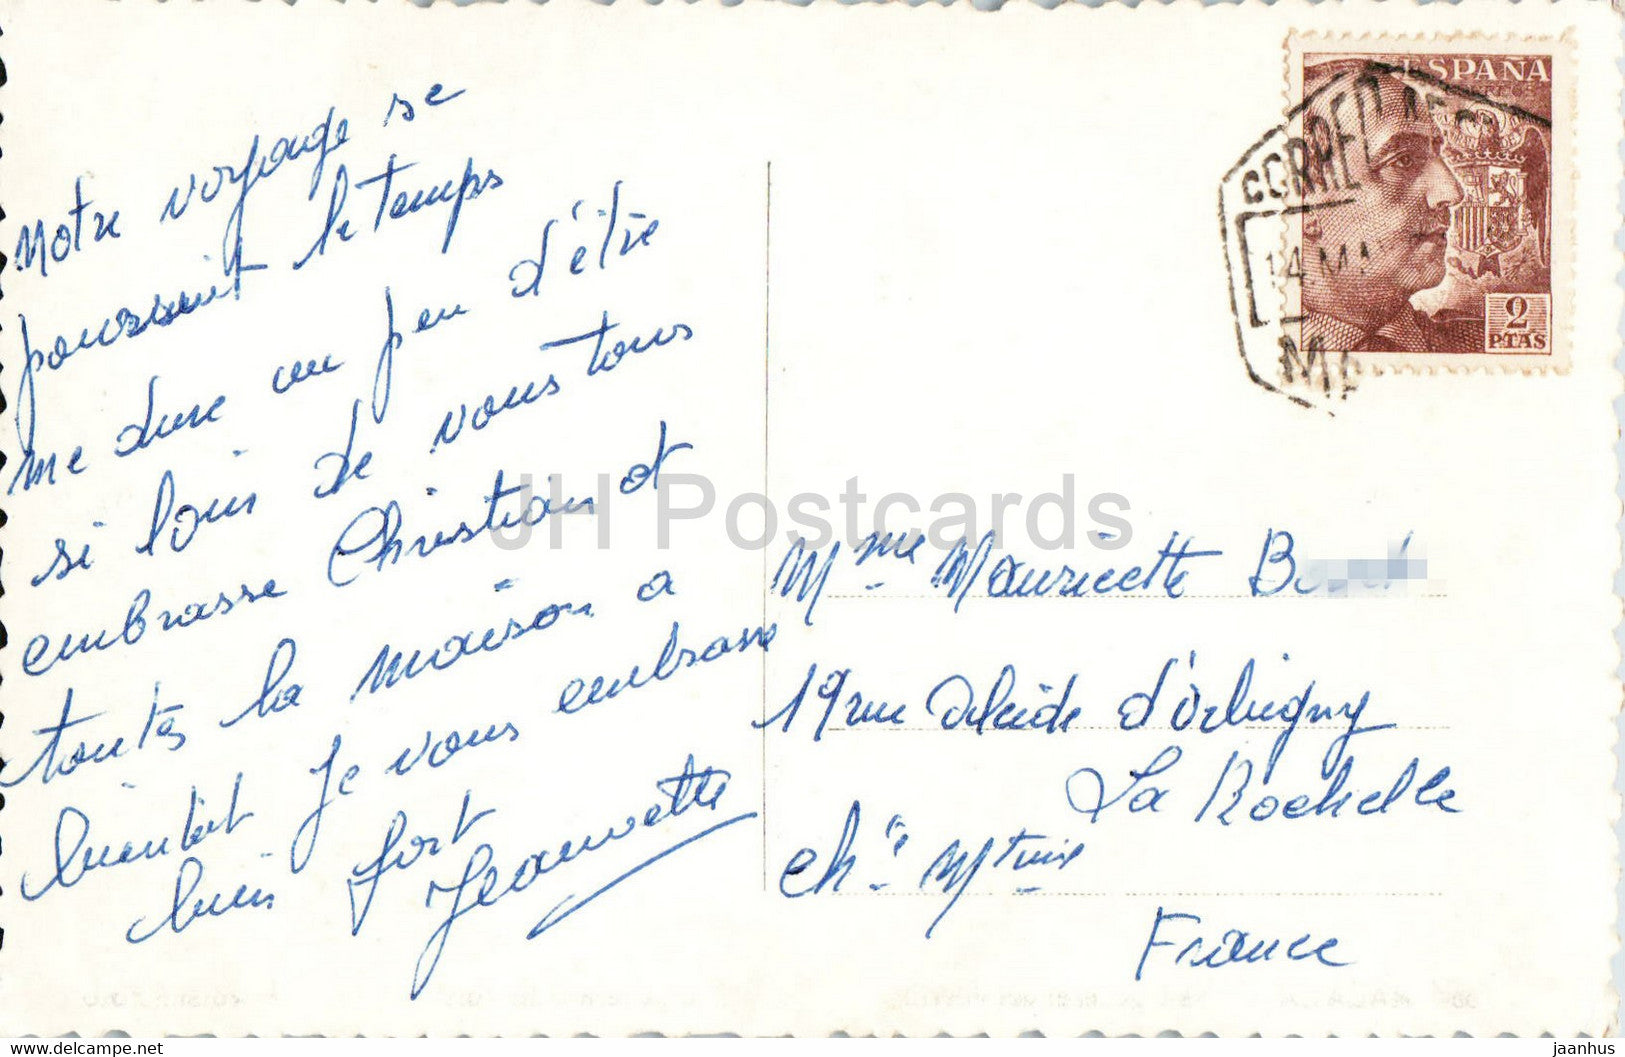 Notre voyage se
poursuit le temps
me dure un peu d'être
si loin de vous tous
embrasse Christian et
toutes la maison a
bientôt je vous embrasse
bien fort
Jeannette
ESPAÑA
CORREO AEREO
14 MA
MA
2
PTAS
JH Postcards
Mme Mauricette B
19 rue Alcide d'Orbigny
La Rochelle
Che Mtime
France
jaanhus